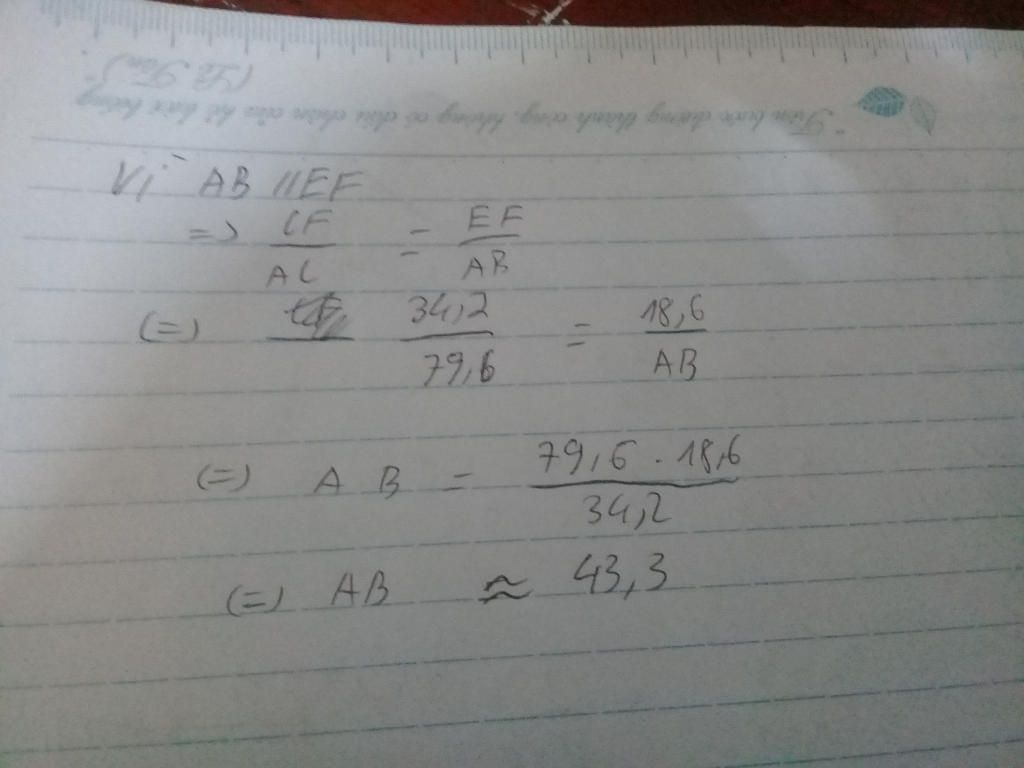 "Trên bước đường thành công, không có dấu chân của kẻ lười biếng"
(Lỗ Tấn)
Vì AB // EF
=> CF/AC = EF/AB
(=) 34,2/79,6 = 18,6/AB
(=) AB = 79,6 . 18,6/34,2
(=) AB ≈ 43,3